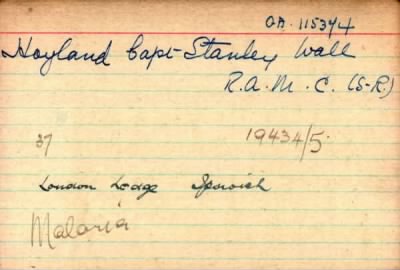 OA. 115374
Hoyland Capt Stanley Wall
R.A.M.C. (S-R.)
37 19434/5
London Lodge Ipswich
Malaria